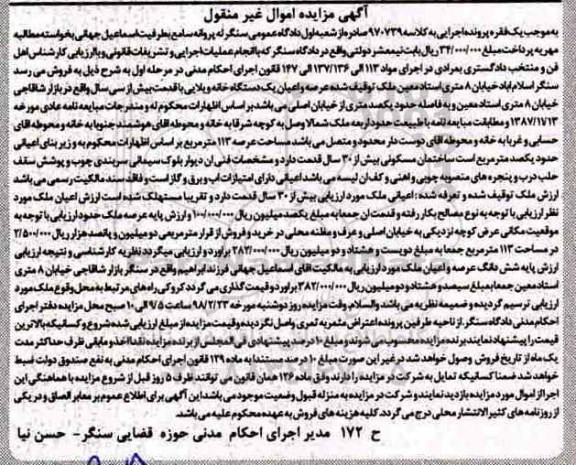 آگهی مزایده اموال غیر منقول
به موجب یک فقره پرونده اجرایی به کلاسه ۹۷۰۷۳۹ صادره از شعبه اول دادگاه عمومی سنگر له پروانه سامع بطرفیت اسماعیل جهانی بخواسته مطالبه
مهریه به پرداخت مبلغ ۳۴/۰۰۰/۰۰۰ ریال بابت نیم عشر دولتی واقع در دادگاه سنگر که با انجام عملیات اجرایی و تشریفات قانونی و با ارزیابی کارشناس اهل
فن و منتخب دادگستری بمرادی در اجرای مواد ۱۱۳ الی ۱۳۷/۱۳۶ الی ۱۴۷ قانون اجرای احکام مدنی در مرحله اول به شرح ذیل به فروش می رسد
سنگر اسلام آباد خیابان ۸ متری استاد معین ملک توقیف شده عرصه و اعیان یک دستگاه خانه ویلایی با قدمت بیش از سی سال واقع در بازار شاقاجی
خیابان ۸ متری استاد معین و به فاصله حدود یکصد متری از خیابان اصلی می باشد بر اساس اظهارات محکوم له و مندرجات مبایعه نامه عادی مورخه
۱۳۸۷/۱۷/۳ و مطابقت مبایعه نامه با طبیعت حدود اربعه ملک شمالا وصل به کوچه شرقا به خانه و محوطه آقای هوشمند جنوبا به خانه و محوطه آقای
حسابی و غربا به خانه و محوطه آقای دوست دار محدود و متصل می باشد مساحت عرصه ۱۱۳ متر مربع بر اساس اظهارات محکوم به و زیر بنای اعیانی
حدود یکصد متر مربع است ساختمان مسکونی بیش از ۳۰ سال قدمت دارد و مشخصات فنی آن دیوار بلوک سیمانی سربندی چوب و پوشش سقف
حلب درب و پنجره های منصوبه چوبی و آهنی و کف آن لیسه می باشد اعیانی دارای امتیازات آب و برق و گاز است و فاقد سند مالکیت رسمی می باشد
ارزش ملک توقیف شده و تعرفه شده : اعیانی ملک مورد ارزیابی بیش از ۳۰ سال قدمت دارد و تقریبا مستهلک شده است ارزش اعیان ملک مورد
نظر ارزیابی با توجه به نوع مصالح بکار رفته و قدمت آن جمعا به مبلغ یکصد میلیون ریال ۱۰۰/۰۰۰/۰۰۰ و ارزش پایه عرصه ملک حدود ارزیابی با توجه به
موقعیت مکانی عرض کوچه نزدیکی به خیابان اصلی و عرف و مظنه محلی در خرید و فروش از قرار متر مربعی دو میلیون و پانصد هزار ریال ۲/۵۰۰/۰۰۰
در مساحت ۱۱۳ متر مربع جمعا به مبلغ دویست و هشتاد و دو میلیون ریال ۲۸۲/۰۰۰/۰۰۰ براورد و ارزیابی میگردد نظریه کارشناسی و نتیجه ارزیابی
ارزش پایه شش دانگ عرصه و اعیان ملک مورد ارزیابی به مالکیت آقای اسماعیل جهانی فرزند ابراهیم واقع در سنگر بازار شاقاجی خیابان ۸ متری
استاد معین جمعا به مبلغ سیصد و هشتاد و دو میلیون ریال ۳۸۲/۰۰۰/۰۰۰ براورد و قیمت گذاری می گردد کروکی راه های مرتبط به محل وقوع ملک مورد
ارزیابی ترسیم گردیده و ضمیمه نظریه می باشد والسلام وقت مزایده روز دوشنبه مورخه ۹۸/۲/۲۳ ساعت ۹/۵ الی ۱۰ صبح محل مزایده دفتر اجرای
احکام مدنی دادگاه سنگر از ناحیه طرفین پرونده اعتراض مثمر به ثمری واصل نگردیده و قیمت مزایده از مبلغ ارزیابی شده شروع و کسانیکه بالاترین
قیمت را پیشنهاد نمایند برنده مزایده محسوب می شوند و مبلغ ۱۰ درصد پیشنهادی فی المجلس از برنده مزایده نقدا اخذ و مابقی ظرف حداکثر مدت
یک ماه از تاریخ فروش وصول خواهد شد در غیر این صورت مبلغ ۱۰ درصد مستندا به ماده ۱۲۹ قانون اجرای احکام مدنی به نفع صندوق دولت ضبط
خواهد شد ضمنا کسانیکه تمایل به شرکت در مزایده را دارند وفق ماده ۱۲۶ همان قانون می توانند ظرف ۵ روز قبل از شروع مزایده با هماهنگی این
اجرا از اموال مورد مزایده بازدید نمایند و شرکت در مزایده به منزله قبول وضعیت موجود می باشد این آگهی برای اطلاع عموم بر معابر الصاق و در یکی
از روزنامه های کثیر الانتشار محلی درج می گردد. کلیه هزینه های فروش به عهده محکوم علیه می باشد.
ح ۱۷۲ مدیر اجرای احکام مدنی حوزه قضایی سنگر- حسن نیا